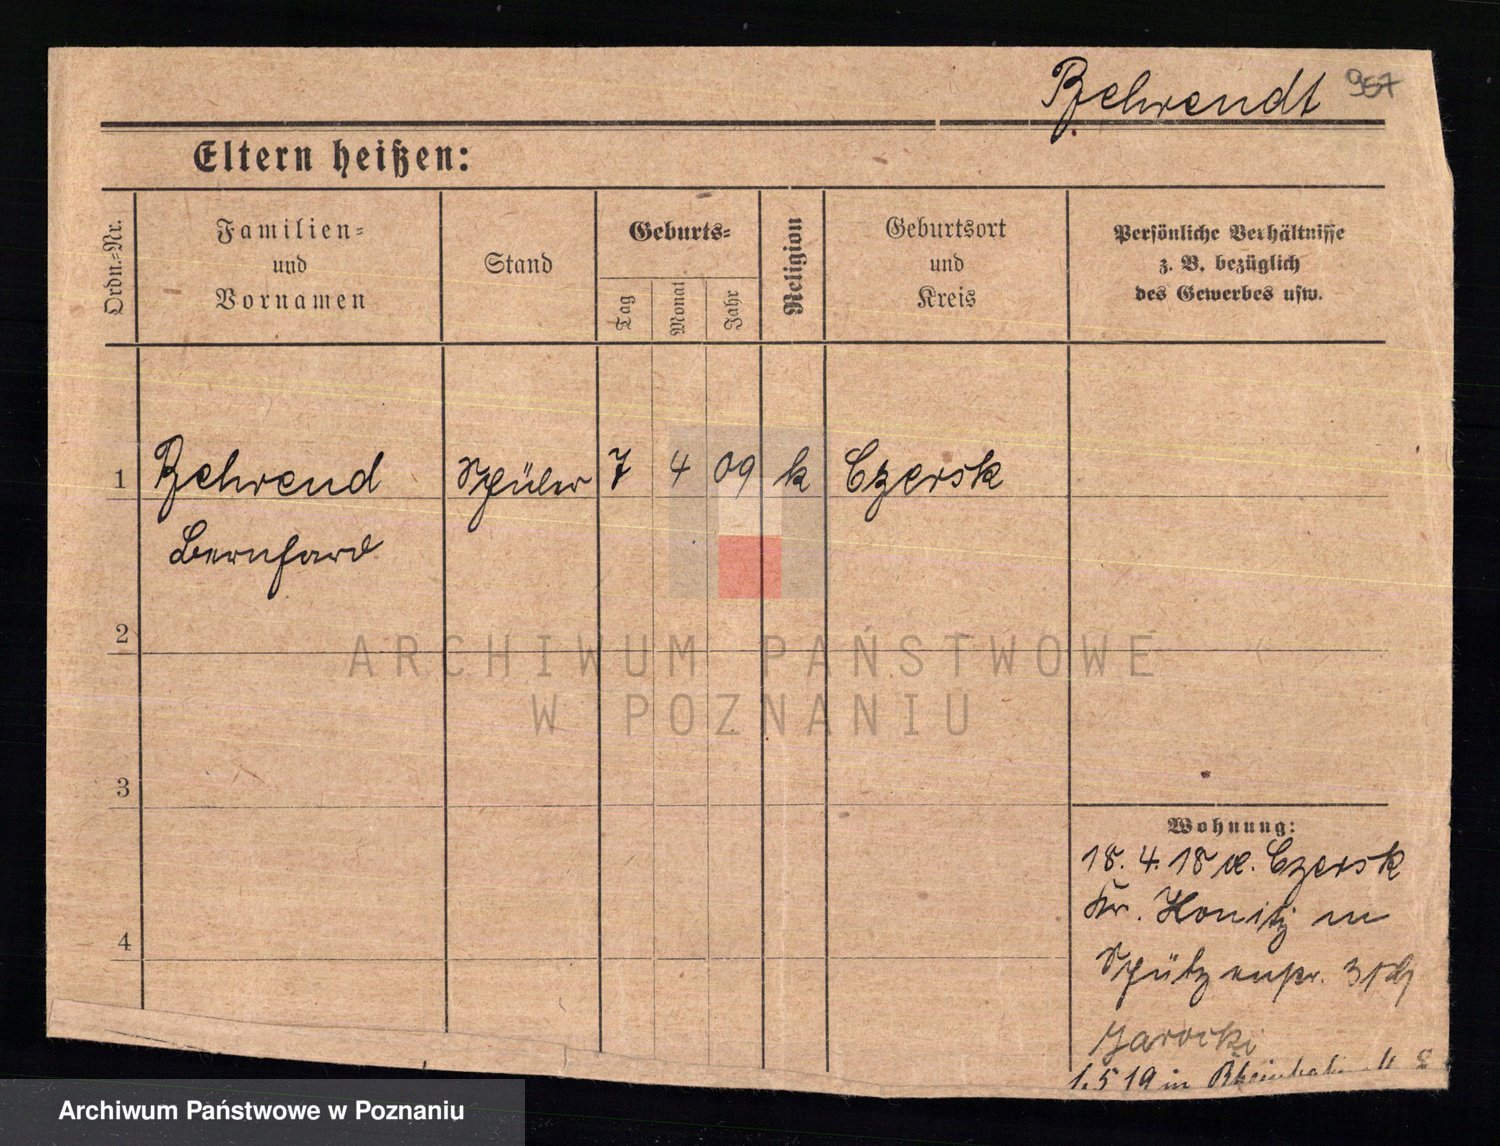 Behrendt 957
Eltern heißen:
Ordn.-Nr.
Familien-
und
Vornamen
Stand
Geburts-
Tag
Monat
Jahr
Religion
Geburtsort
und
Kreis
Persönliche Verhältnisse
z. B. bezüglich
des Gewerbes usw.
1 Behrend Schüler 7 4 09 k Czersk
Bernhard
2
3
4
Wohnung:
18. 4. 18 v. Czersk
Kr. Konitz in
Schützenstr. 31
Jarocki
1.5 19 in
ARCHIWUM PAŃSTWOWE
W POZNANIU
Archiwum Państwowe w Poznaniu